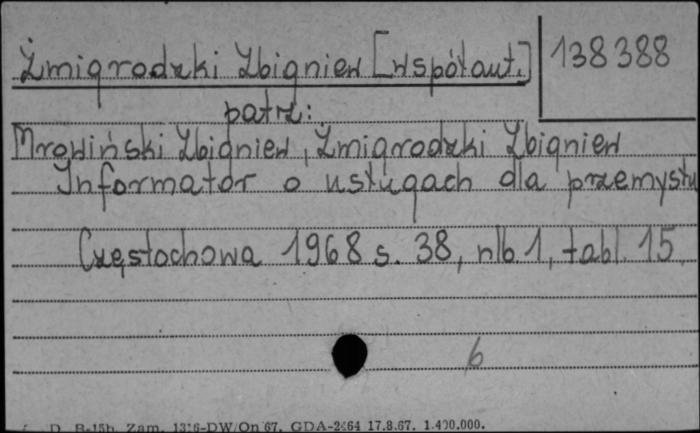 Żmigrodzki Zbigniew [współaut.]
138388
patrz:
Mrowiński Zbigniew, Żmigrodzki Zbigniew
Informator o usługach dla przemysłu
Częstochowa 1968 s. 38, nlb 1, tabl. 15
6
D. B-15b. Zam. 1316-DW/On 67. GDA-2464 17.8.67. 1.400.000.